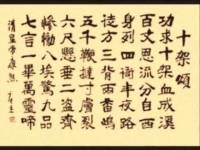 十架頌
功求十架血成溪
百丈恩流分自西
身列四衙半夜路
徒方三背兩番
五千鞭撻寸膚裂
六尺懸垂二盜齊
慘慟八垓驚九品
七言一畢萬靈啼
清皇帝康熙